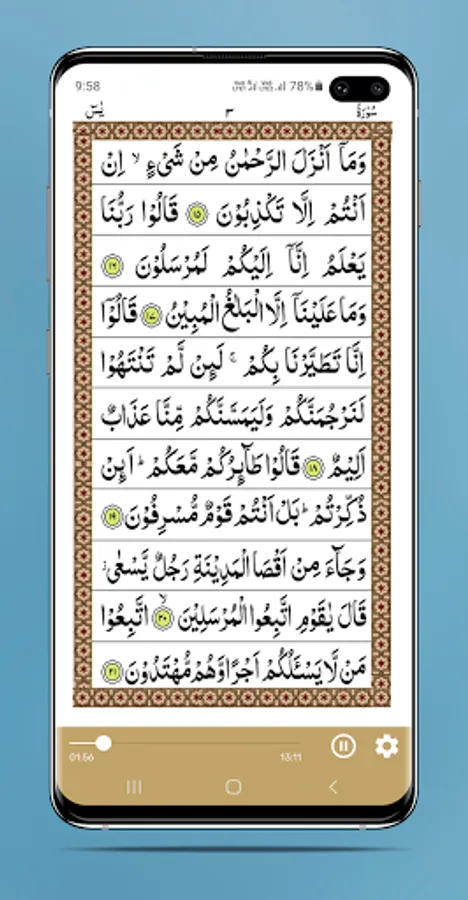 9:58
78%
سُوْرَةُ ٣ يٰسٓ
وَمَآ اَنْزَلَ الرَّحْمٰنُ مِنْ شَيْءٍ ۙ اِنْ
اَنْتُمْ اِلَّا تَكْذِبُوْنَ ١٥ قَالُوْا رَبُّنَا
يَعْلَمُ اِنَّآ اِلَيْكُمْ لَمُرْسَلُوْنَ ١٦
وَمَا عَلَيْنَآ اِلَّا الْبَلٰغُ الْمُبِيْنُ ١٧ قَالُوْٓا
اِنَّا تَطَيَّرْنَا بِكُمْ ۚ لَىِٕنْ لَّمْ تَنْتَهُوْا
لَنَرْجُمَنَّكُمْ وَلَيَمَسَّنَّكُمْ مِّنَّا عَذَابٌ
اَلِيْمٌ ١٨ قَالُوْا طَآىِٕرُكُمْ مَّعَكُمْ ؕ اَىِٕنْ
ذُكِّرْتُمْ ؕ بَلْ اَنْتُمْ قَوْمٌ مُّسْرِفُوْنَ ١٩
وَجَآءَ مِنْ اَقْصَا الْمَدِيْنَةِ رَجُلٌ يَّسْعٰى ؗ
قَالَ يٰقَوْمِ اتَّبِعُوا الْمُرْسَلِيْنَ ۙ ٢٠ اتَّبِعُوْا
مَنْ لَّا يَسْـَٔلُكُمْ اَجْرًا وَّهُمْ مُّهْتَدُوْنَ ٢١
01:56 13:11